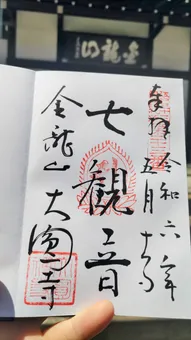 金龍山
奉拝
令和六年
五月十
七観音
金龍山 大圓寺